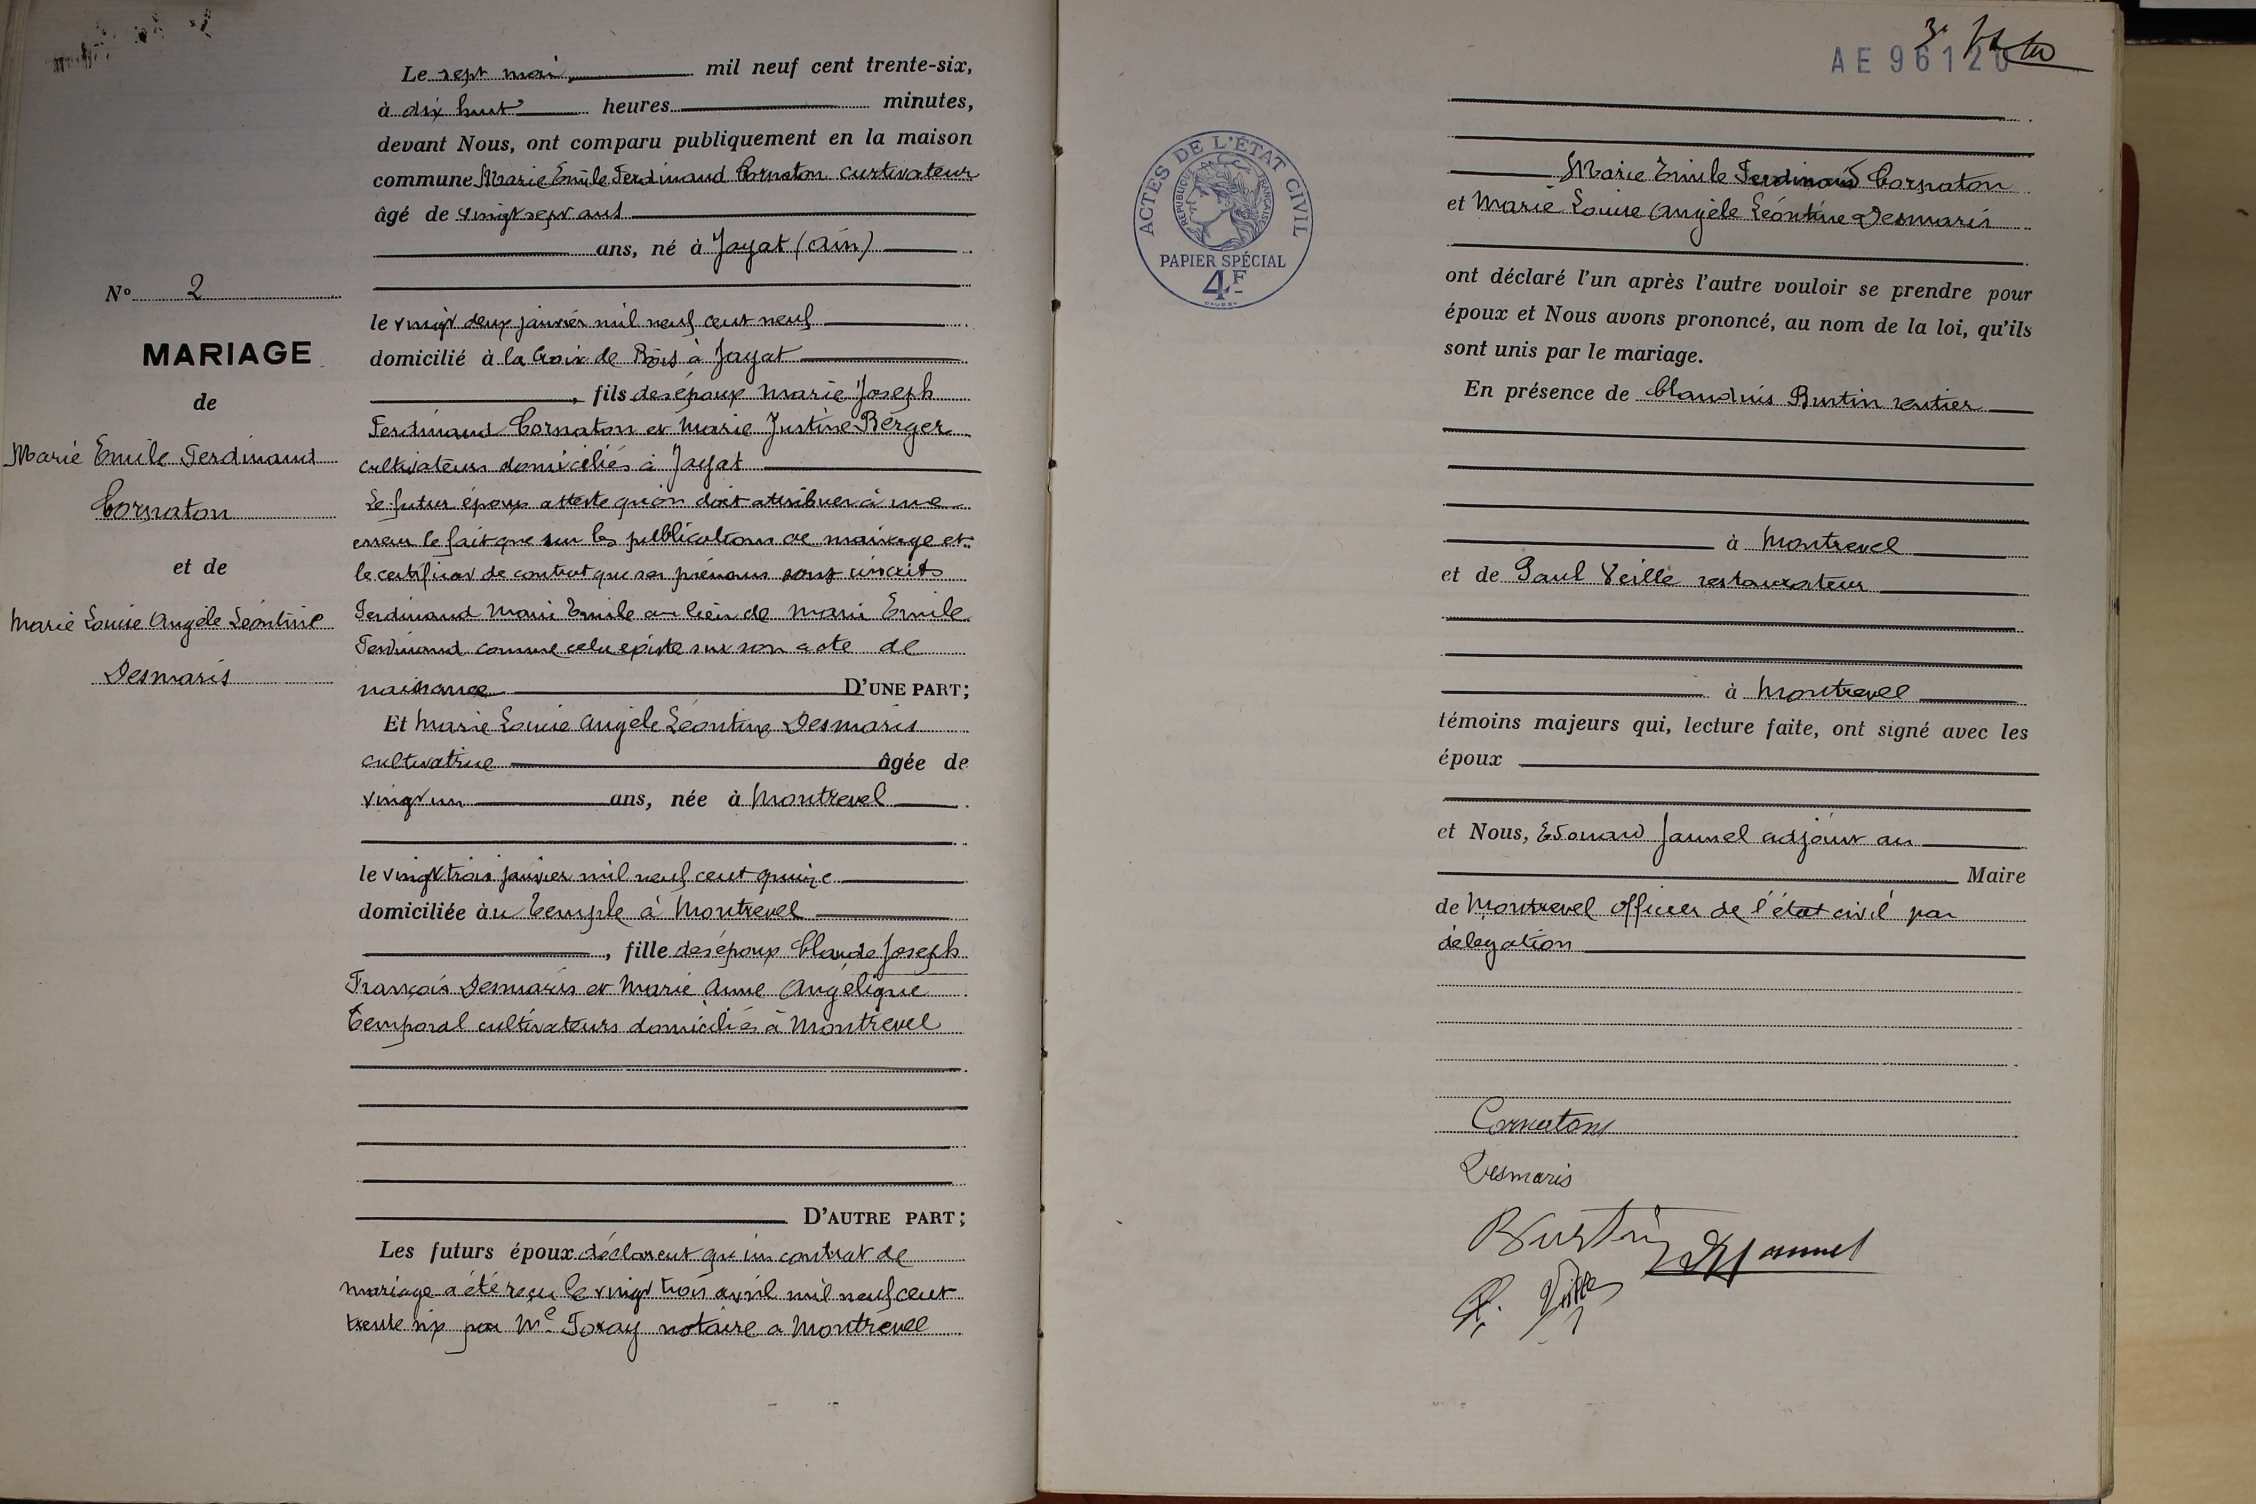 Le sept mai, mil neuf cent trente-six,
à dix huit heures minutes,
devant Nous, ont comparu publiquement en la maison
commune Marie Emile Ferdinand Cornaton cultivateur
âgé de vingt sept ans
ans, né à Jayat (Ain)
N° 2
le vingt deux janvier mil neuf cent neuf
MARIAGE
domicilié à la Croix de Bois à Jayat
de
, fils des époux Marie Joseph
Ferdinand Cornaton et Marie Justine Berger
Marie Emile Ferdinand
cultivateurs domiciliés à Jayat
Cornaton
Le futur époux atteste qu'on doit attribuer à une
erreur le fait que sur les publications de mariage et
et de
le certificat de contrat que ses prénoms sont inscrits
Marie Louise Angèle Léontine
Ferdinand Marie Emile au lieu de Marie Emile
Ferdinand comme cela existe sur son acte de
Desmaris
naissance D'UNE PART;
Et Marie Louise Angèle Léontine Desmaris
cultivatrice âgée de
vingt un ans, née à Montrevel
le vingt trois janvier mil neuf cent quinze
domiciliée au Temple à Montrevel
, fille des époux Claude Joseph
François Desmaris et Marie Anne Angélique
Temporal cultivateurs domiciliés à Montrevel
D'AUTRE PART;
Les futurs époux déclarent qu'un contrat de
mariage a été reçu le vingt trois avril mil neuf cent
trente six par Me Foray notaire à Montrevel
AE 96120
ACTES DE L'ÉTAT CIVIL
RÉPUBLIQUE FRANÇAISE
PAPIER SPÉCIAL
4F
Marie Emile Ferdinand Cornaton
et Marie Louise Angèle Léontine Desmaris
ont déclaré l'un après l'autre vouloir se prendre pour
époux et Nous avons prononcé, au nom de la loi, qu'ils
sont unis par le mariage.
En présence de Claudius Burtin rentier
à Montrevel
et de Paul Veille restaurateur
à Montrevel
témoins majeurs qui, lecture faite, ont signé avec les
époux
et Nous, Edouard Jaunel adjoint au
Maire
de Montrevel officier de l'état civil par
délégation
Cornaton
Desmaris
Burtin